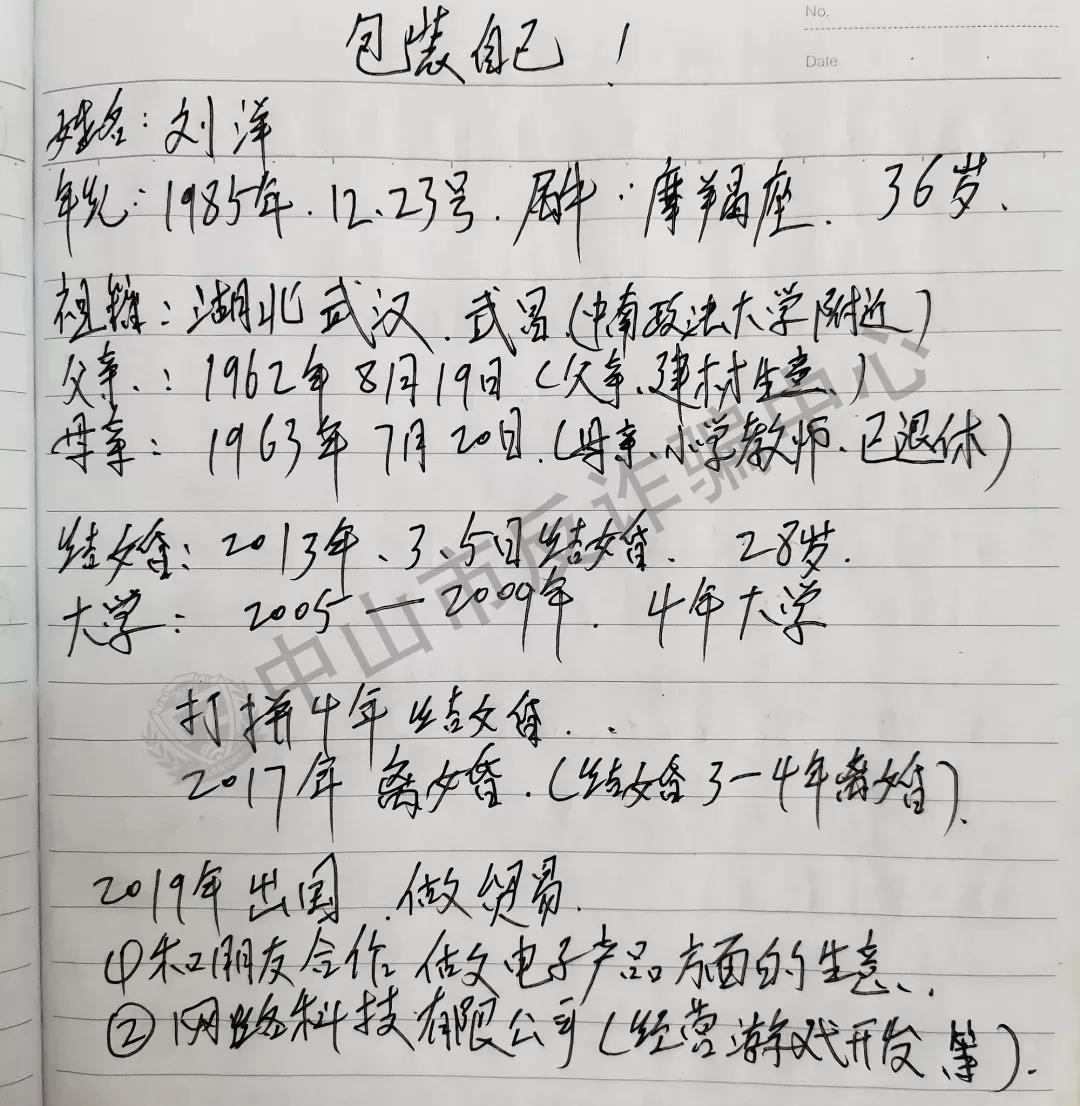 No.
Date
包装自己!
姓名:刘洋
年纪:1985年.12.23号.属牛.摩羯座.36岁.
祖籍:湖北武汉.武昌(中南政法大学附近)
父亲.:1962年8月19日(父亲.建材生意.)
母亲:1963年7月20日.(母亲.小学教师.已退休)
结婚:2013年.3.5日结婚.28岁.
大学:2005—2009年.4年大学
打拼4年结婚..
2017年离婚.(结婚3-4年离婚).
2019年出国.做贸易.
①和朋友合作做电子产品方面的生意.
②网络科技有限公司(经营游戏开发等).
中山市反诈骗中心